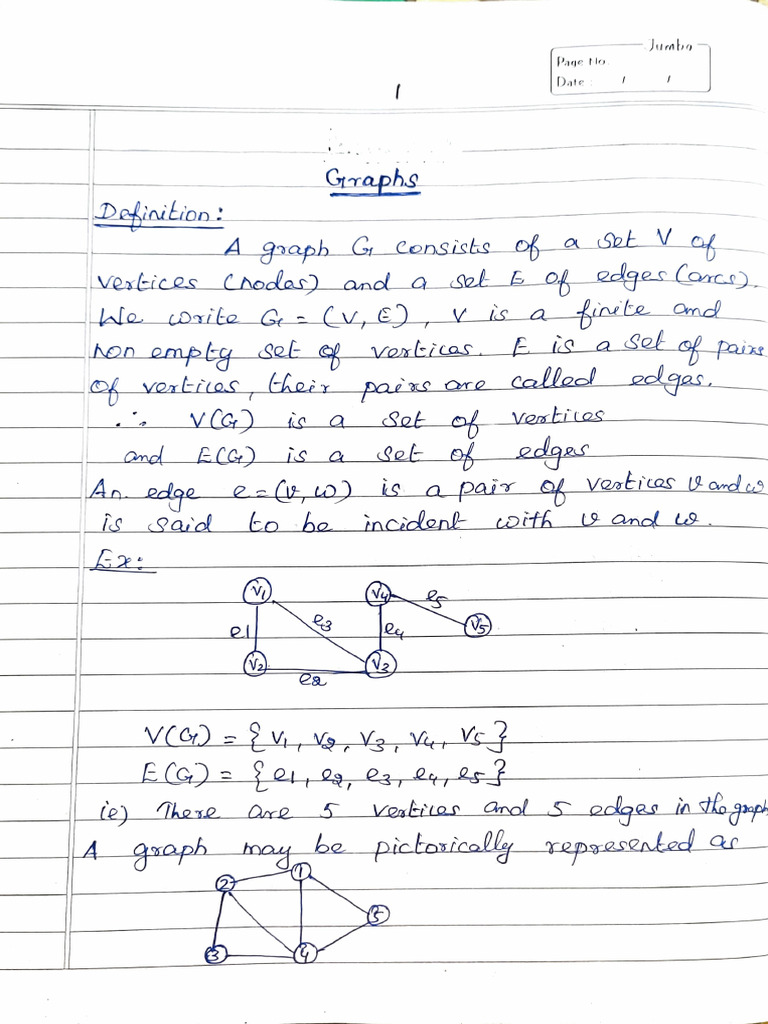 Jumbo
Page No.
Date : / /
1
Graphs
Definition:
A graph G consists of a set V of
vertices (nodes) and a set E of edges (arcs).
We write G = (V, E), V is a finite and
non empty set of vertices. E is a set of pairs
of vertices, their pairs are called edges.
∴ V(G) is a set of vertices
and E(G) is a set of edges
An. edge e = (v, w) is a pair of vertices v and w
is said to be incident with v and w.
Ex:
v1 v4 e5
e1 e3 e4 v5
v2 e2 v3
V(G) = { v1, v2, v3, v4, v5 }
E(G) = { e1, e2, e3, e4, e5 }
ie) There are 5 vertices and 5 edges in the graph
A graph may be pictorically represented as
2 1
5
3 4